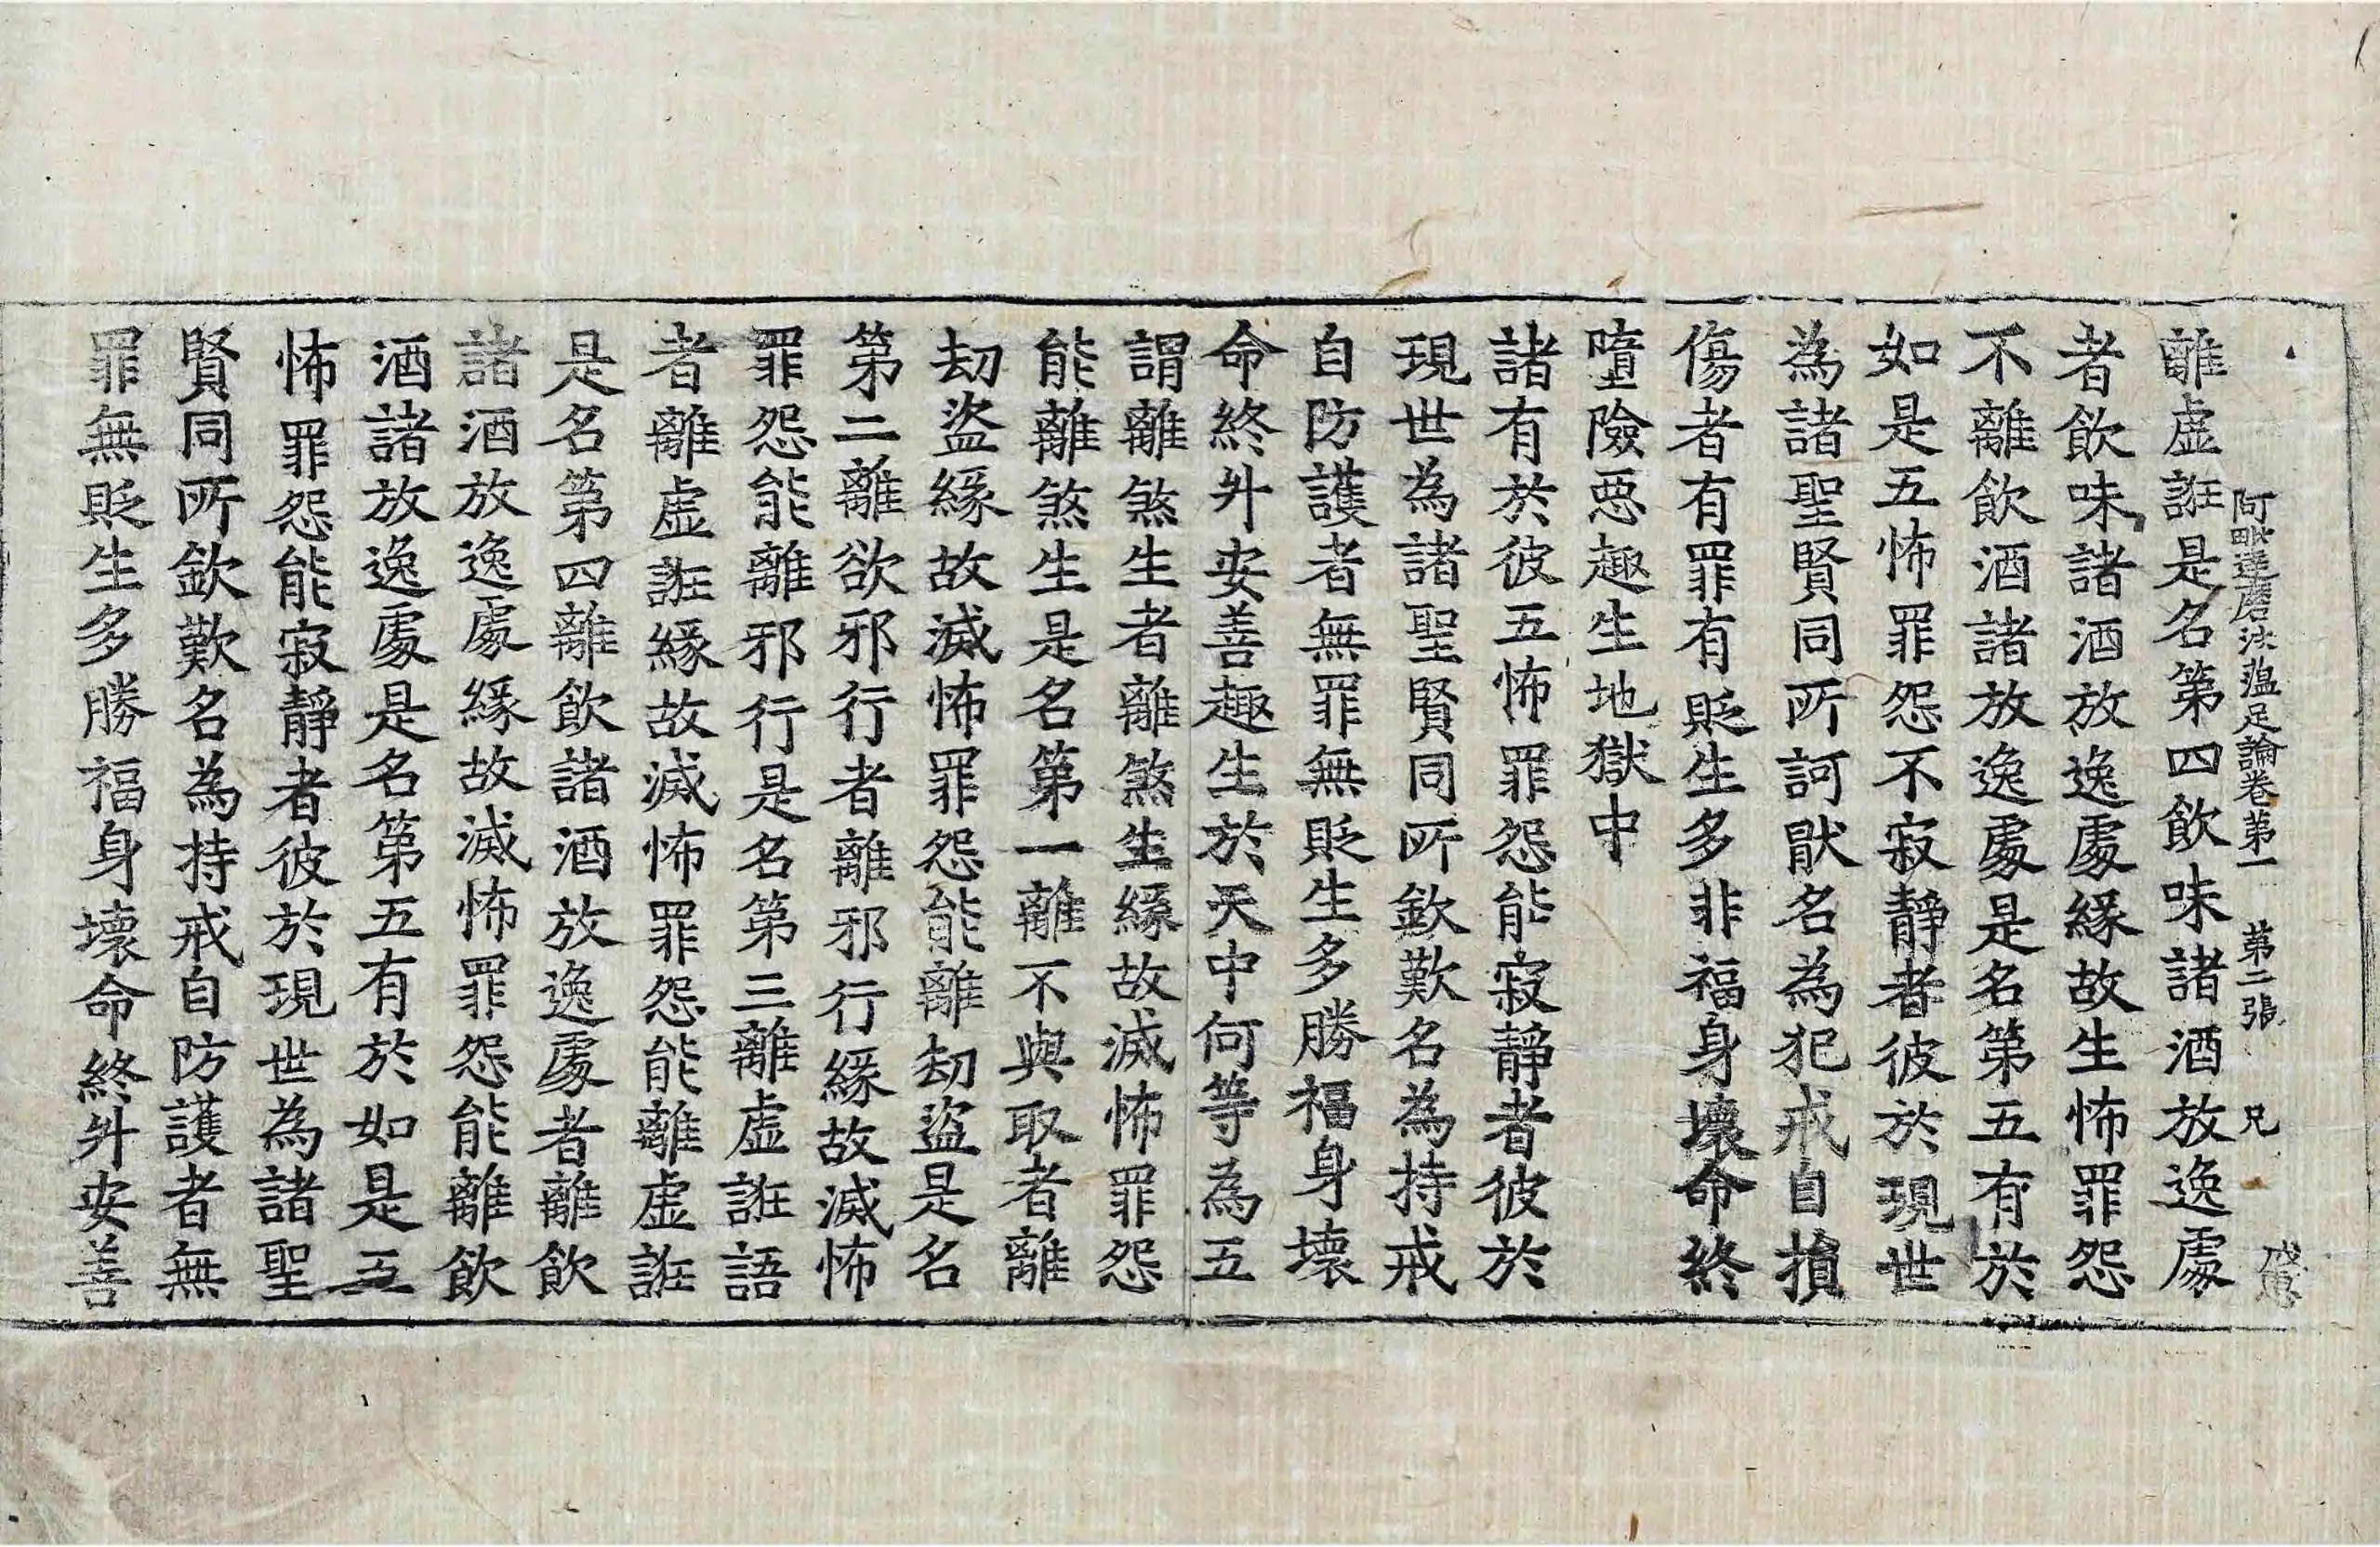 阿毗達磨法蕴足論卷第一 第二張 兄
離虛誑是名第四飲味諸酒放逸處
者飲味諸酒放逸處緣故生怖罪怨
不離飲酒諸放逸處是名第五有於
如是五怖罪怨不寂靜者彼於現世
為諸聖賢同所訶猒名為犯戒自損
傷者有罪有貶生多非福身壞命終
墮險惡趣生地獄中
諸有於彼五怖罪怨能寂靜者彼於
現世為諸聖賢同所欽歎名為持戒
自防護者無罪無貶生多勝福身壞
命終升安善趣生於天中何等為五
謂離煞生者離煞生緣故滅怖罪怨
能離煞生是名第一離不與取者離
劫盜緣故滅怖罪怨能離劫盜是名
第二離欲邪行者離邪行緣故滅怖
罪怨能離邪行是名第三離虛誑語
者離虛誑緣故滅怖罪怨能離虛誑
是名第四離飲諸酒放逸處者離飲
諸酒放逸處緣故滅怖罪怨能離飲
酒諸放逸處是名第五有於如是五
怖罪怨能寂靜者彼於現世為諸聖
賢同所欽歎名為持戒自防護者無
罪無貶生多勝福身壞命終升安善